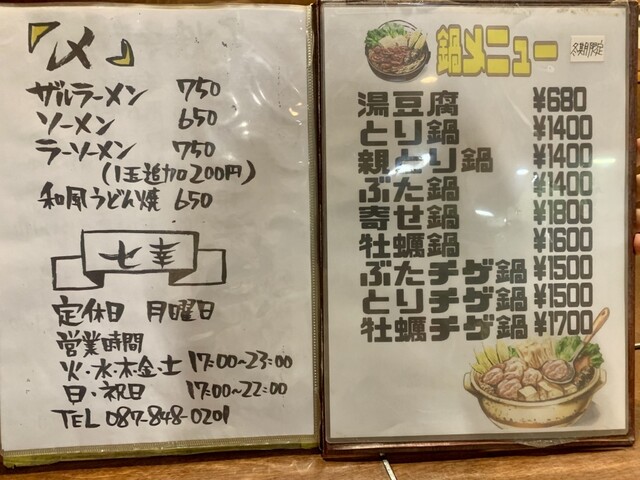 『〆』
ザルラーメン 750
ソーメン 650
ラーソーメン 750
(1玉追加200円)
和風うどん焼 650
七幸
定休日 月曜日
営業時間
火・水・木・金・土 17:00~23:00
日・祝日 17:00~22:00
TEL 087-848-0201
鍋メニュー 冬期限定
湯豆腐 ¥680
とり鍋 ¥1400
親とり鍋 ¥1400
ぶた鍋 ¥1400
寄せ鍋 ¥1800
牡蠣鍋 ¥1600
ぶたチゲ鍋 ¥1500
とりチゲ鍋 ¥1500
牡蠣チゲ鍋 ¥1700